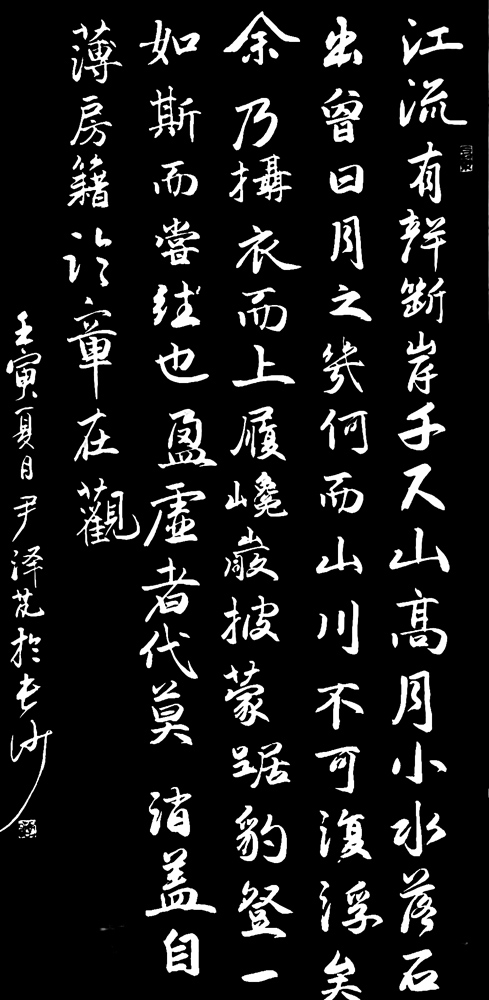 江流有斷岸千尺山高月小水落石
出曾日月之幾何而山川不可復浮矣
余乃攝衣而上履巉巖披蒙踞豹登一
如斯而嘗也盈虛者代莫消蓋自
薄房籍章在觀
壬寅夏月尹泽芃於长沙